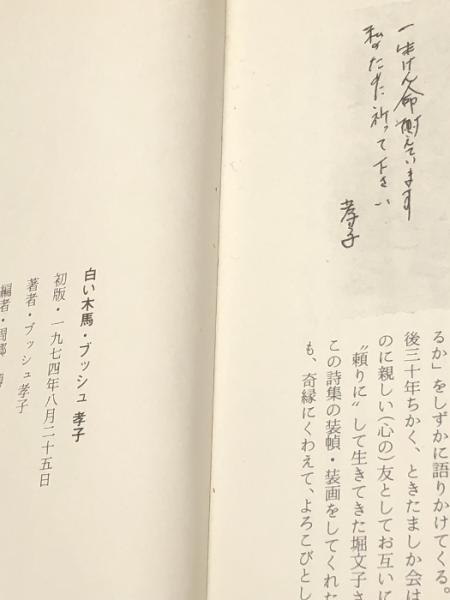 一生けん命耐えています
私のために祈って下さい
孝子
るか」をしずかに語りかけてくる。
後三十年ちかく、ときたましか会は
のに親しい(心の)友としてお互いに
〝頼りに〟して生きてきた堀文子さ
この詩集の装幀・装画をしてくれた
も、奇縁にくわえて、よろこびとし
白い木馬・ブッシュ孝子
初版・一九七四年八月二十五日
著者・ブッシュ孝子
編者・周郷